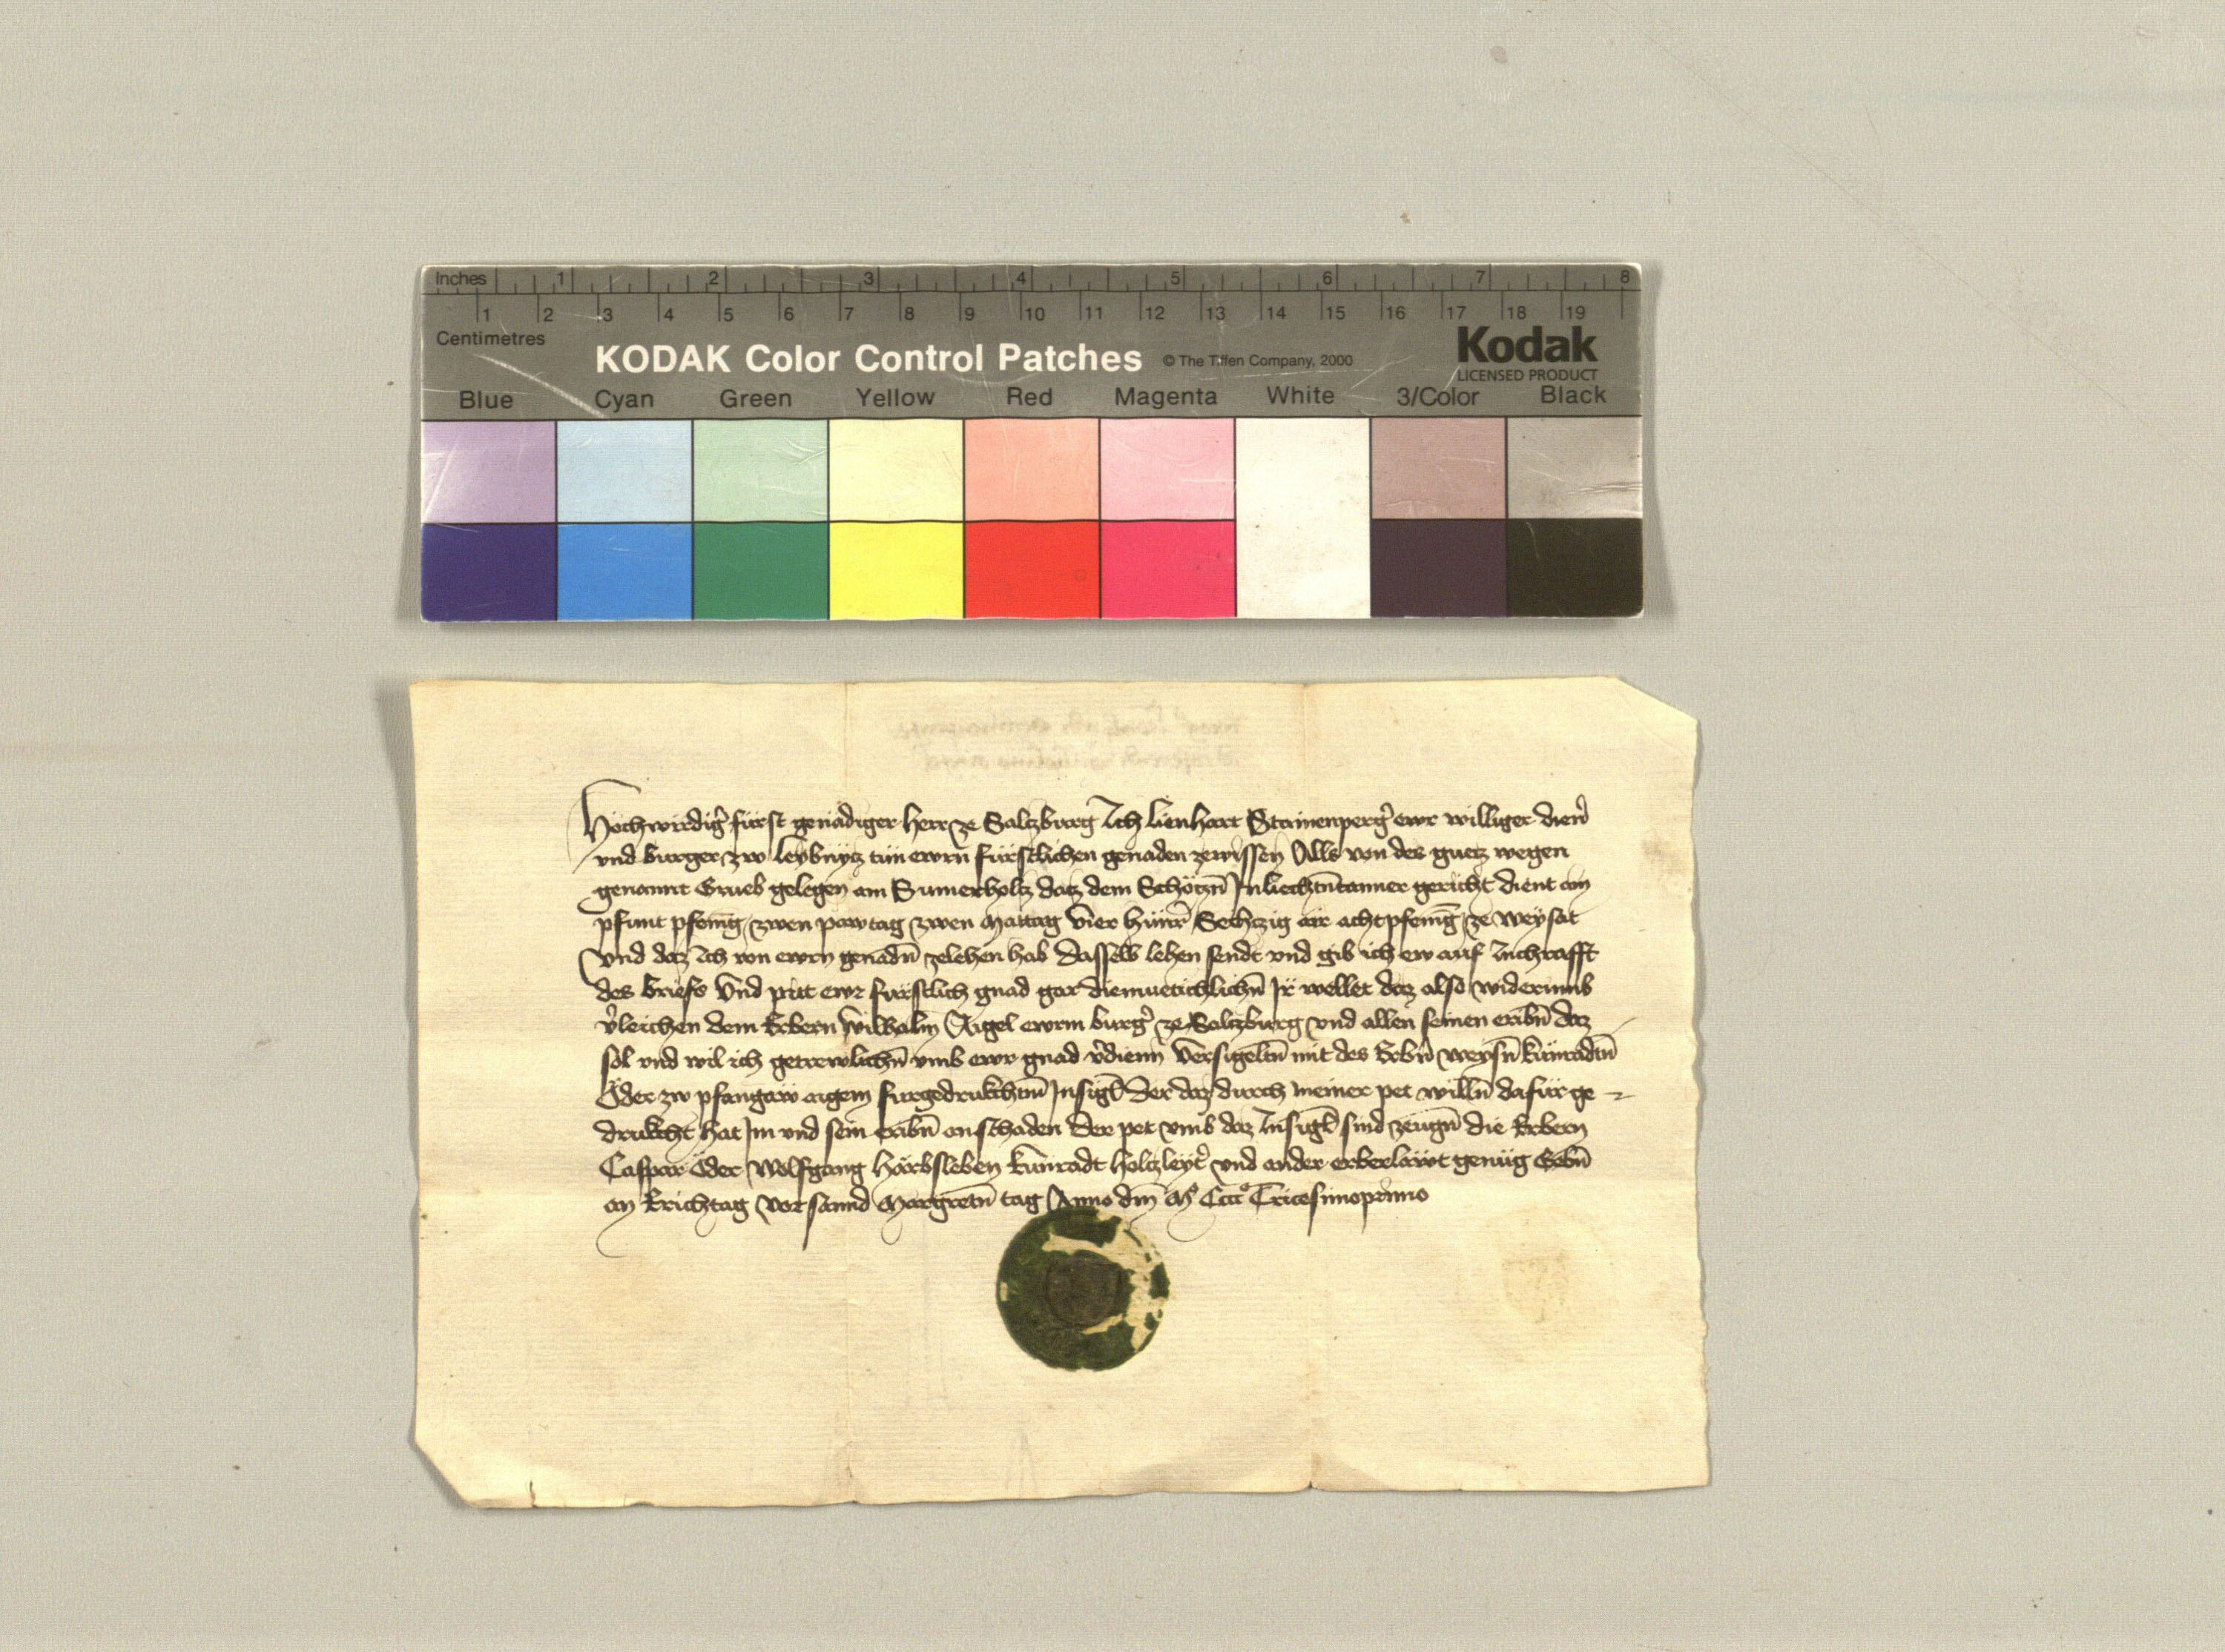 Inches 1 2 3 4 5 6 7 8
1 2 3 4 5 6 7 8 9 10 11 12 13 14 15 16 17 18 19
Centimetres
KODAK Color Control Patches © The Tiffen Company, 2000 Kodak
LICENSED PRODUCT
Blue Cyan Green Yellow Red Magenta White 3/Color Black
Hochwirdiḡ fürst genädiger herr ze Saltzburg Ich lienhart Stainenperḡ ewr williger dien̄
vnd burger zw leybnycz tün ewrn fürstlichen genaden zewissen Alls von des guetz wegen
genannt Grueb gelegen am Sumerholtz datz dem Schötzn̄ In liechtn̄tanner gericht dient ain
pfunt pfeniḡ zwen pawtag zwen Mattag vier hünr̄ Sechczig air acht pfeniḡ ze weysat
Vnd daz Ich von ewrn genadn̄ zelehen hab Dasselb lehen sendt vnd gib ich ew auf Inchrafft
des briefs Vnd pitt ewr fürstlich gnad gar diemuetichlichn̄ Ir wellet daz also widerumb
v̄leichen dem Erbern Wilhalm Aigel ewrm burḡ ze Saltzburg vnd allen seinen eribn̄ daz
sol vnd wil ich getrewlichn̄ vmb ewr gnad v̄dienn Versigeltn̄ mit des Erbn̄ weysn̄ künradtn̄
Öder zw pfangaw aigem furgedrukchtm̄ Insigl̄ Der daz durch meiner pet willn̄ dafür ge
drukcht hat Im vnd sein eribn̄ an schaden Der pet vmb daz Insigl̄ sind zeugn̄ die Erbern
Caspar Öder Wolfgang härbsleben künradt holtzleyt̄ vnd ander erber läwt genüg Gebn̄
an Erichtag vor sannd Margretn̄ tag Anno dm̄ Mº Cccº Tricesimoprimo